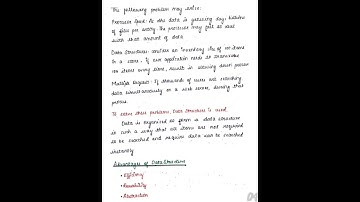 The following problem may arise:
Processor Speed: As the data is growing day, billions
of files per entity. The processor may fail to deal
with that amount of data
Data Structure: consider an inventory size of 100 items
in a store. If our application needs to transverse
100 items every time, result in slowing down process
Multiple Request: If thousands of users are searching
data simultaneously on a web server, slowing that
process.
To solve these problems, Data Structure is used
Data is organized to form a data structure
in such a way that all items are not required
to be searched and require data can be searched
instantly
Advantages of Data Structure
• Efficiency
• Reusability
• Abstraction